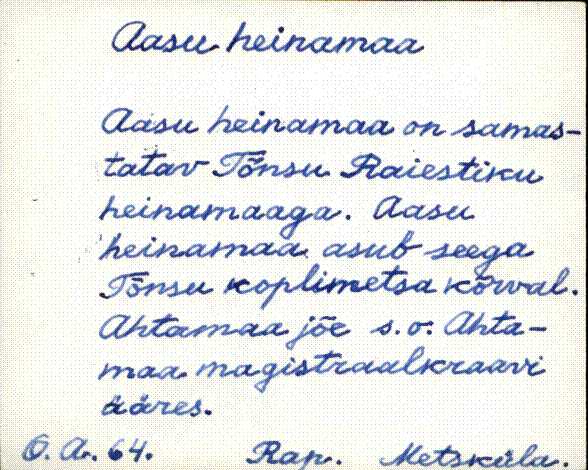 Aasu heinamaa
Aasu heinamaa on samas-
tatav Tõnsu Raiestiku
heinamaaga. Aasu
heinamaa asub seega
Tõnsu koplimetsa kõrval.
Ahtamaa jõe s.o. Ahta-
maa magistraalkraavi
ääres.
O. A. 64. Rap. Metsküla.